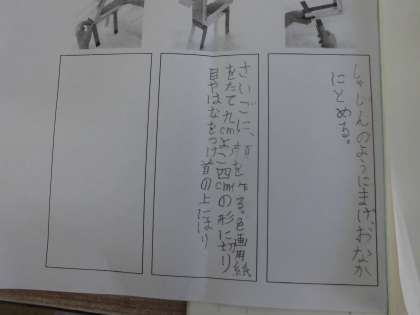 しゃしんのようにまげ、おなか
にとめる。
さいごに、首を作る。色画用紙
をたて九cmよこ四cmの形に切り
目やはなをつけ首の上には